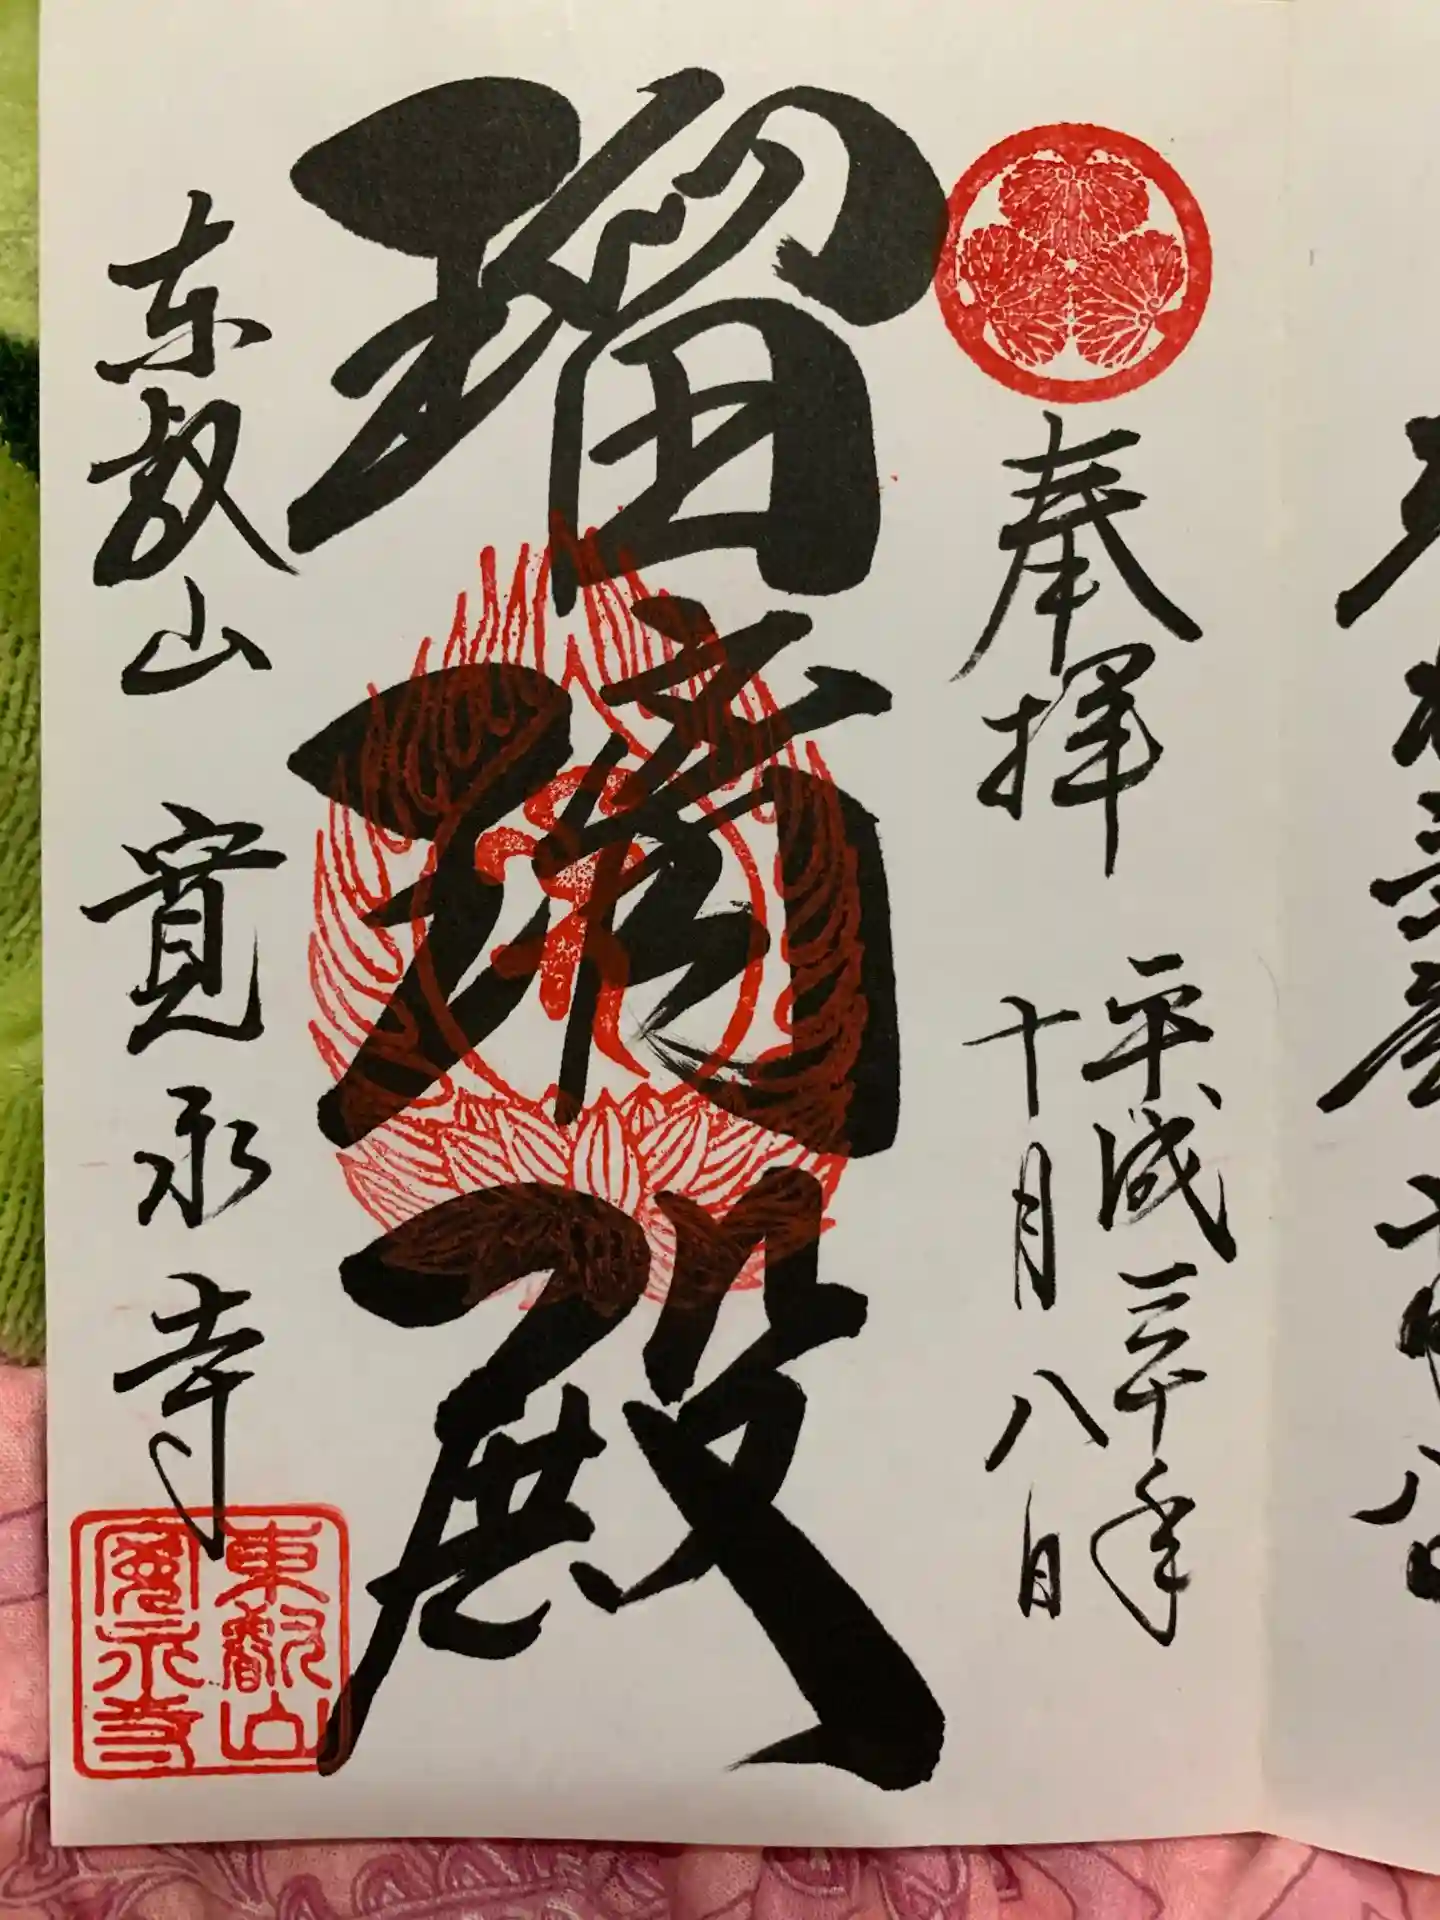 奉拝
平成三十年
十月八日
瑠璃殿
東叡山 寛永寺
東叡山
寛永寺